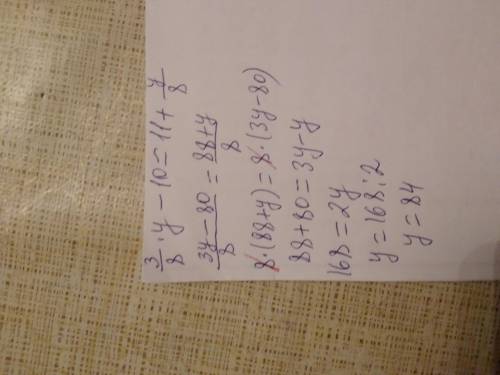 3/8 · y − 10 = 11 + y/8
3y − 80/8 = 88 + y/8
8 · (88 + y) = 8 · (3y − 80)
88 + 80 = 3y − y
168 = 2y
y = 168 : 2
y = 84